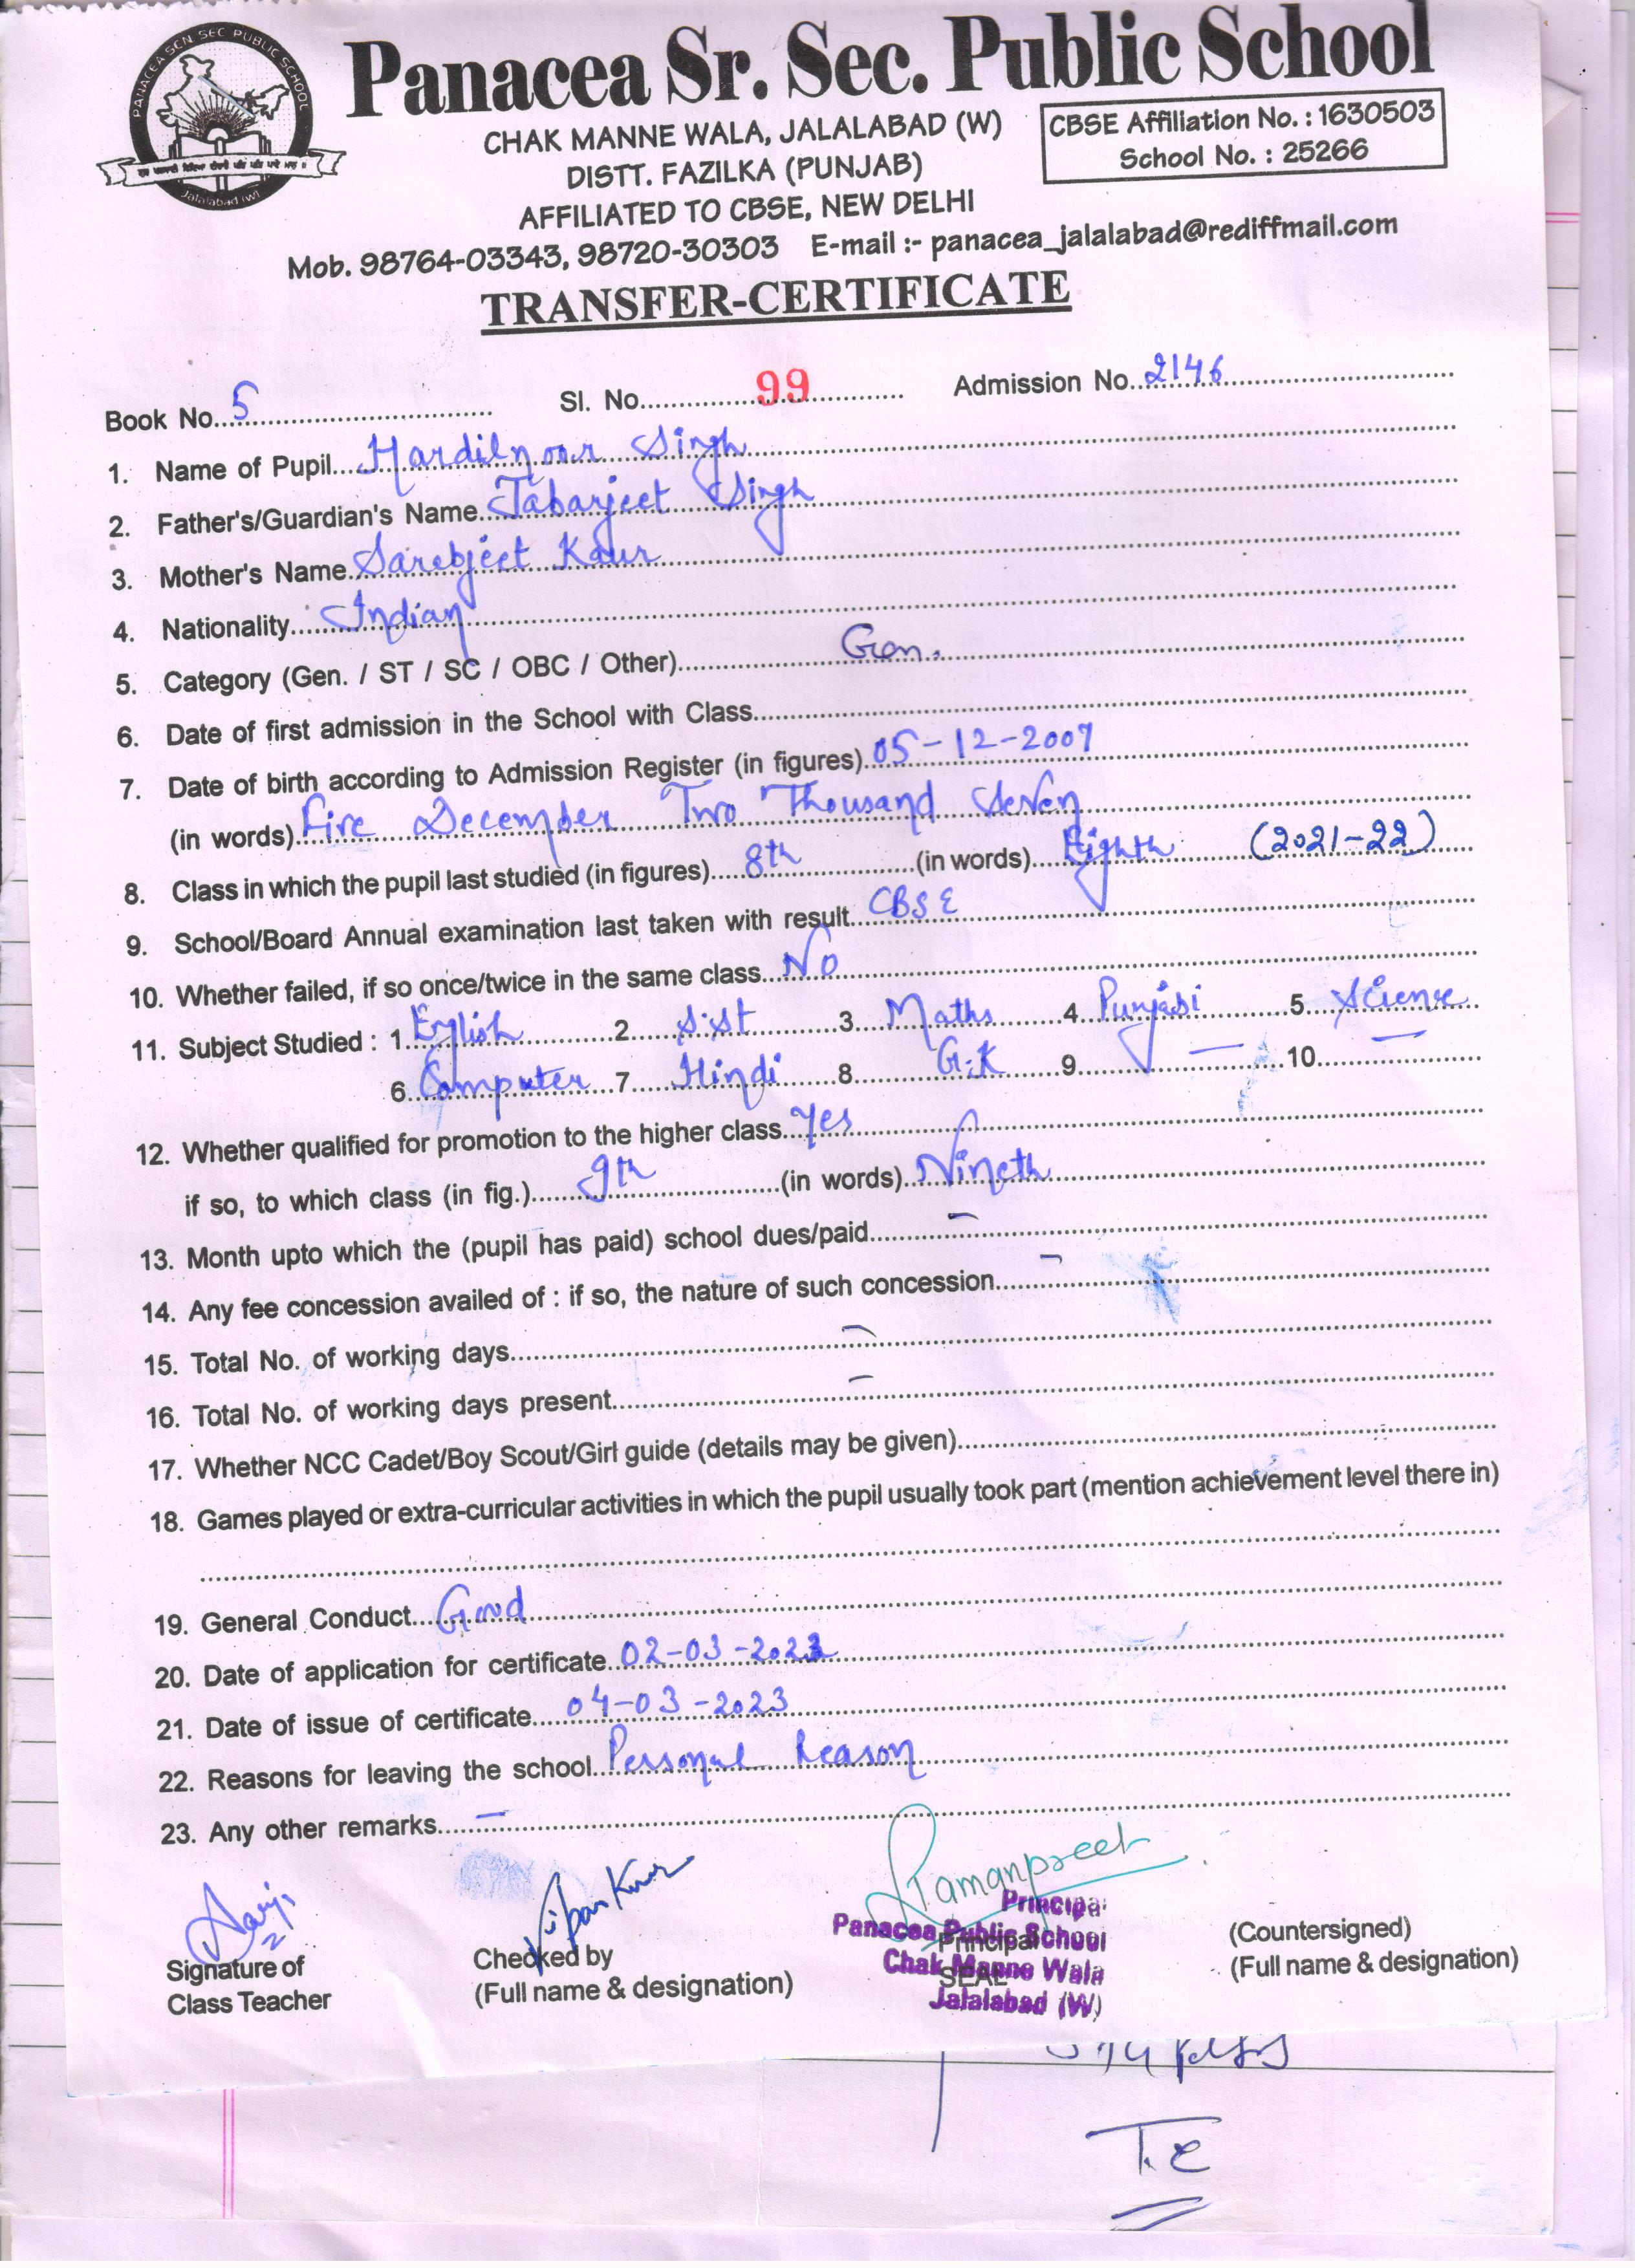 PANACEA SEN SEC PUBLIC SCHOOL
Jalalabad (W)
Panacea Sr. Sec. Public School
CHAK MANNE WALA, JALALABAD (W)
CBSE Affiliation No. : 1630503
School No. : 25266
DISTT. FAZILKA (PUNJAB)
AFFILIATED TO CBSE, NEW DELHI
Mob. 98764-03343, 98720-30303 E-mail :- panacea_jalalabad@rediffmail.com
TRANSFER-CERTIFICATE
Book No. 5 Sl. No. 99 Admission No. 2146
1. Name of Pupil Hardilnoor Singh
2. Father's/Guardian's Name Jabarjeet Singh
3. Mother's Name Sarebjeet Kaur
4. Nationality Indian
5. Category (Gen. / ST / SC / OBC / Other) Gen.
6. Date of first admission in the School with Class
7. Date of birth according to Admission Register (in figures) 05-12-2007
(in words) Five December Two Thousand Seven
8. Class in which the pupil last studied (in figures) 8th (in words) Eighth (2021-22)
9. School/Board Annual examination last taken with result CBSE
10. Whether failed, if so once/twice in the same class No
11. Subject Studied : 1 English 2 S.St 3 Maths 4 Punjabi 5 Science
6 Computer 7 Hindi 8 G.K 9 — 10 —
12. Whether qualified for promotion to the higher class Yes
if so, to which class (in fig.) 9th (in words) Nineth
13. Month upto which the (pupil has paid) school dues/paid –
14. Any fee concession availed of : if so, the nature of such concession –
15. Total No. of working days –
16. Total No. of working days present –
17. Whether NCC Cadet/Boy Scout/Girl guide (details may be given)
18. Games played or extra-curricular activities in which the pupil usually took part (mention achievement level there in)
19. General Conduct Good
20. Date of application for certificate 02-03-2023
21. Date of issue of certificate 04-03-2023
22. Reasons for leaving the school Personal Reason
23. Any other remarks –
Ramanpreet
Principal
Panacea Public School
Chak Manne Wala
Jalalabad (W)
Signature of
Class Teacher
Checked by
(Full name & designation)
Principal
SEAL
(Countersigned)
(Full name & designation)
T.C